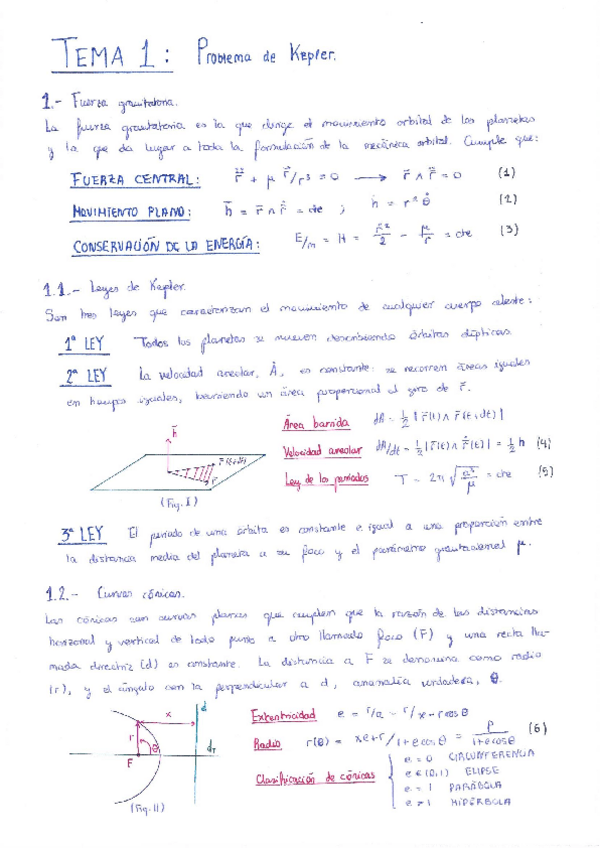 TEMA 1: Problema de Kepler.
1.- Fuerza gravitatoria.
La fuerza gravitatoria es la que dirige el movimiento orbital de los planetas
y la que da lugar a toda la formulación de la mecánica orbital. Cumple que:
FUERZA CENTRAL: r̈ + μ r⃗/r³ = 0 → r⃗ ∧ r̈ = 0 (1)
MOVIMIENTO PLANO: h⃗ = r⃗ ∧ ṙ = cte ; h = r² θ̇ (2)
CONSERVACIÓN DE LA ENERGÍA: E/m = H = ṙ²/2 - μ/r = cte (3)
1.1.- Leyes de Kepler.
Son tres leyes que caracterizan el movimiento de cualquier cuerpo celeste:
1ª LEY Todos los planetas se mueven describiendo órbitas elípticas.
2ª LEY La velocidad areolar, Ȧ, es constante: se recorren áreas iguales
en tiempos iguales, barriendo un área proporcional al giro de r⃗.
Área barrida dA = 1/2 | r⃗(t) ∧ r⃗(t+dt) |
Velocidad areolar dA/dt = 1/2 | r⃗(t) ∧ ṙ(t) | = 1/2 h (4)
Ley de los periodos T = 2π √(a³/μ) = cte (5)
h⃗
r⃗(t+dt)
r⃗
(Fig. I)
3ª LEY El periodo de una órbita es constante e igual a una proporción entre
la distancia media del planeta a su foco y el parámetro gravitacional μ.
1.2.- Curvas cónicas.
Las cónicas son curvas planas que cumplen que la razón de las distancias
horizontal y vertical de todo punto a otro llamado foco (F) y una recta lla-
mada directriz (d) es constante. La distancia a F se denomina como radio
(r), y el ángulo con la perpendicular a d, anomalía verdadera, θ.
d
x
r
θ
F
(Fig. II)
Excentricidad
Radio r(θ) = = p/1+e cosθ (6)
Clasificación de cónicas
e = 0 CIRCUNFERENCIA
e ∈ (0,1) ELIPSE
e = 1 PARÁBOLA
e > 1 HIPÉRBOLA